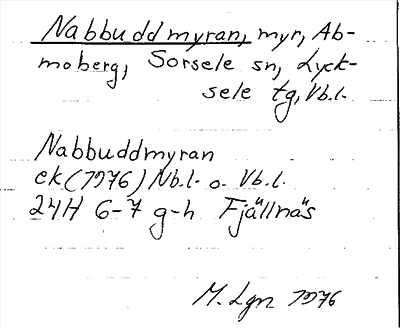 Nabbuddmyran, myr, Ab-
moberg, Sorsele sn, Lyck-
sele tg, Vb.l.
Nabbuddmyran
ek (1976) Nb.l. o. Vb.l.
24H 6-7 g-h Fjällnäs
M. Lgn 1976